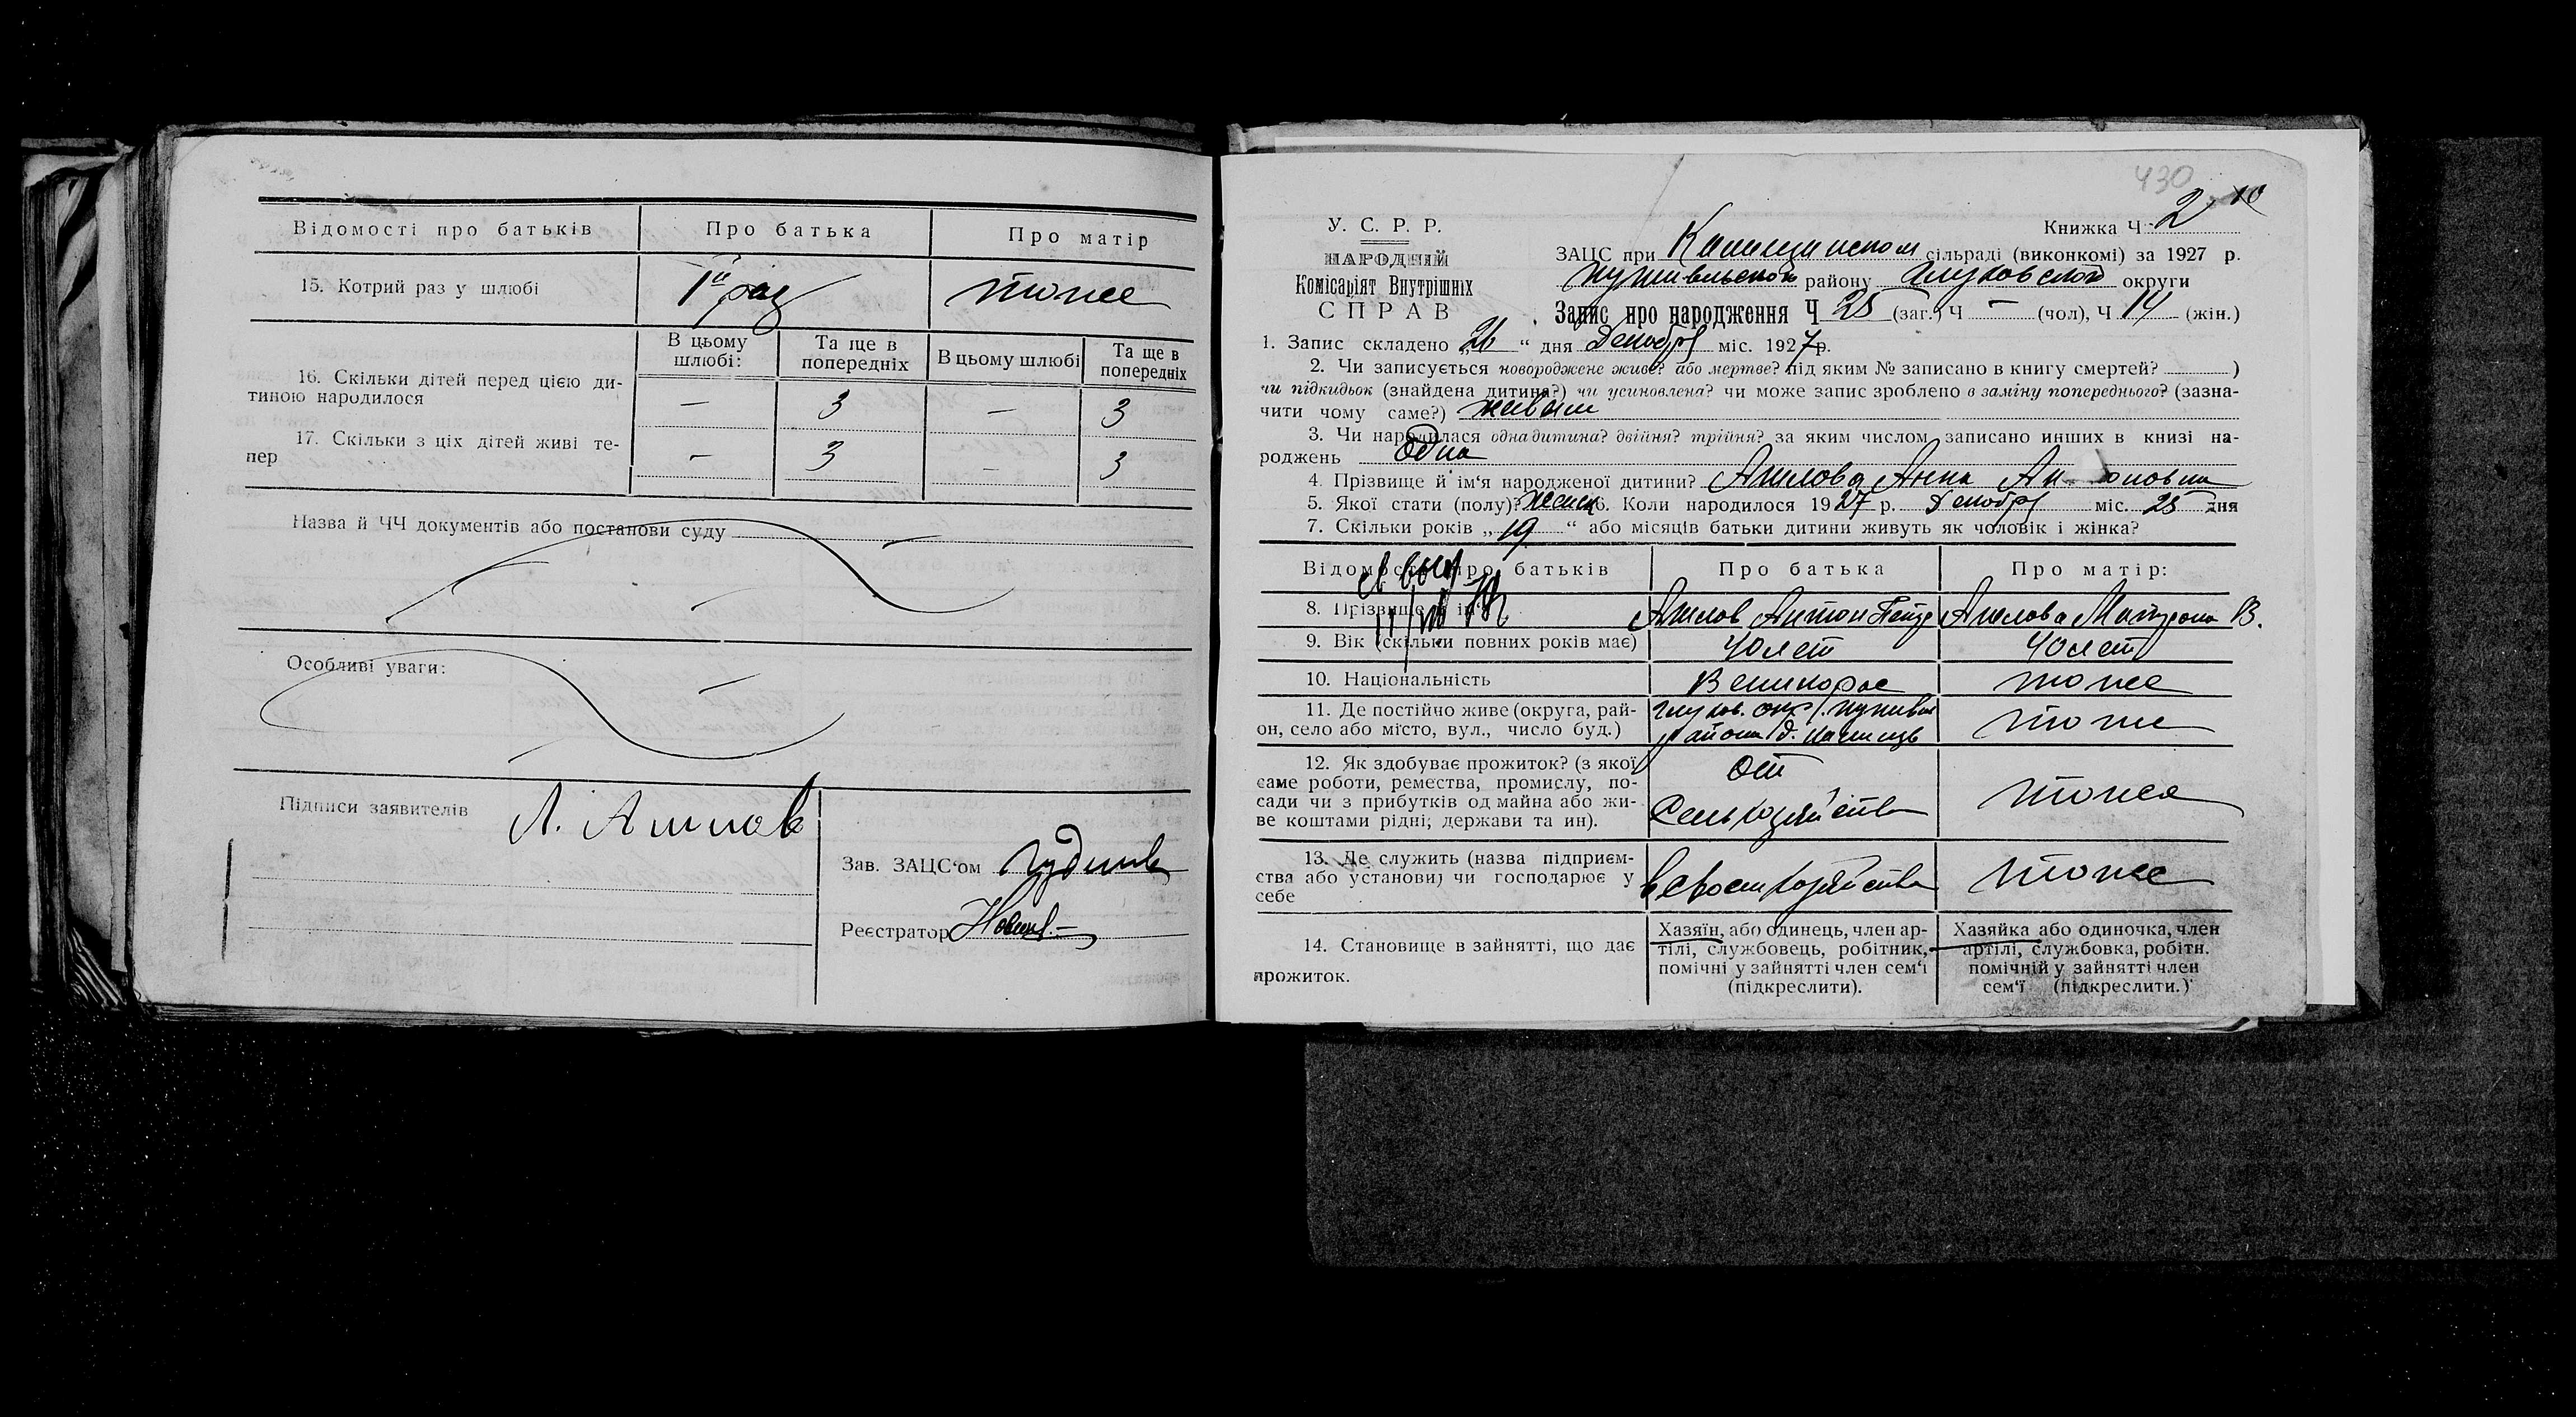 Відомості про батьків Про батька Про матір
15. Котрий раз у шлюбі 1й раз тоже
В цьому шлюбі: Та ще в попередніх В цьому шлюбі Та ще в попередніх
16. Скільки дітей перед цією ди-
тиною народилося — 3 — 3
17. Скільки з ціх дітей живі те-
пер — 3 — 3
Назва й ЧЧ документів або постанови суду —
Особливі уваги: —
Підписи заявителів
Зав. ЗАЦС‘ом
Реєстратор
430
У. С. Р. Р.
НАРОДНІЙ
Комісаріят Внутрішніх
СПРАВ
Книжка Ч 2 10
ЗАЦС при сільраді (виконкомі) за 1927 р.
Путивльской району Глуховской округи
Запис про народження Ч 28 (заг.) Ч — (чол), Ч 14 (жін.)
1. Запис складено „26“ дня Декабря міс. 1927 р.
2. Чи записується новороджене живе? або мертве? під яким № записано в книгу смертей? )
чи підкидьок (знайдена дитина?) чи усиновлена? чи може запис зроблено в заміну попереднього? (зазна-
чити чому саме?) живым
3. Чи народилася одна дитина? двійня? трійня? за яким числом записано инших в книзі на-
роджень Одна
4. Прізвище й ім‘я народженої дитини? Анна
5. Якої стати (полу)? женск 6. Коли народилося 1927 р. Декабря міс. 25 дня
7. Скільки років „19“ або місяців батьки дитини живуть як чоловік і жінка?
Відомості про батьків Про батька Про матір:
8. Прізвище й ім‘я Антон В.
9. Вік (скільки повних років має) 40 лет 40 лет
10. Національність Великорос тоже
11. Де постійно живе (округа, рай-
он, село або місто, вул., число буд.) Глухов. окр. района д. тоже
12. Як здобуває прожиток? (з якої
саме роботи, ремества, промислу, по-
сади чи з прибутків од майна або жи-
ве коштами рідні; держави та ин). От Сельхозяйства тоже
13. Де служить (назва підприєм-
ства або установи) чи господарює у
себе в своем хозяйстве тоже
14. Становище в зайнятті, що дає
прожиток.
Хазяїн, або одинець, член ар-
тілі, службовець, робітник,
помічні у зайнятті член сем‘ї
(підкреслити).
Хазяйка або одиночка, член
артілі, службовка, робітн.
помічній у зайнятті член
сем‘ї (підкреслити.)